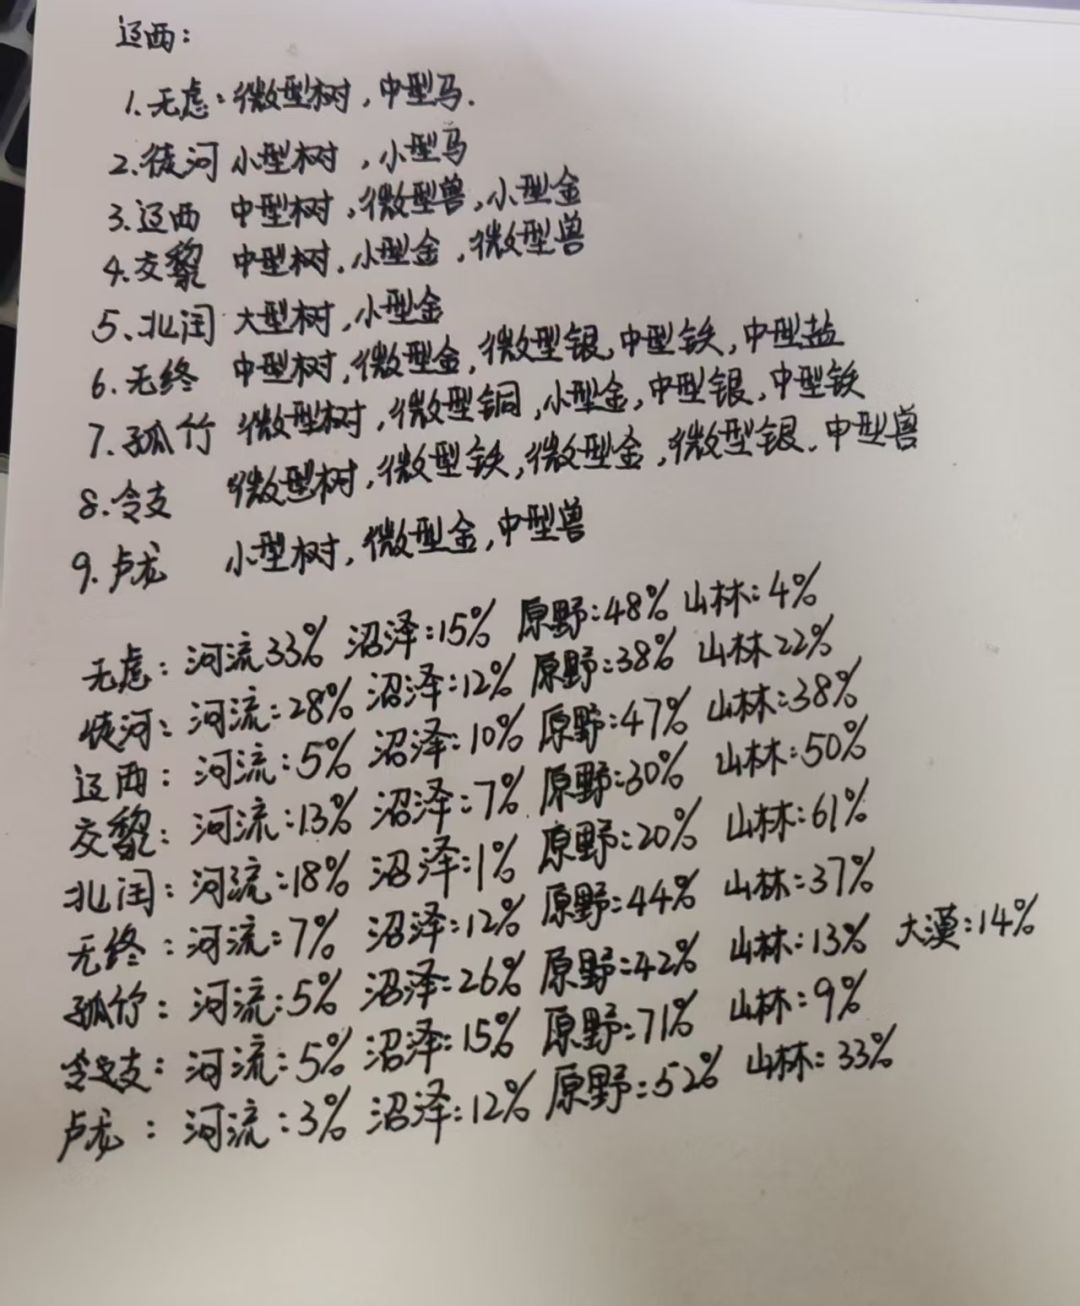 辽西：
1.无虑：微型树，中型马.
2.徒河 小型树，小型马
3.辽西 中型树，微型兽，小型金
4.交黎 中型树，小型金，微型兽
5、北闰 大型树，小型金
6.无终 中型树，微型金，微型银，中型铁，中型盐
7.孤竹 微型树，微型铜，小型金，中型银，中型铁
8.令支 微型树，微型铁，微型金，微型银，中型兽
9.卢龙 小型树，微型金，中型兽
无虑：河流33% 沼泽：15% 原野：48% 山林：4%
徒河：河流：28% 沼泽：12% 原野：38% 山林22%
辽西：河流：5% 沼泽：10% 原野：47% 山林：38%
交黎：河流：13% 沼泽：7% 原野：30% 山林：50%
北闰：河流：18% 沼泽：1% 原野：20% 山林：61%
无终：河流：7% 沼泽：12% 原野：44% 山林：37%
孤竹：河流：5% 沼泽：26% 原野：42% 山林：13% 大漠：14%
令支：河流：5% 沼泽：15% 原野：71% 山林：9%
卢龙：河流：3% 沼泽：12% 原野：52% 山林：33%